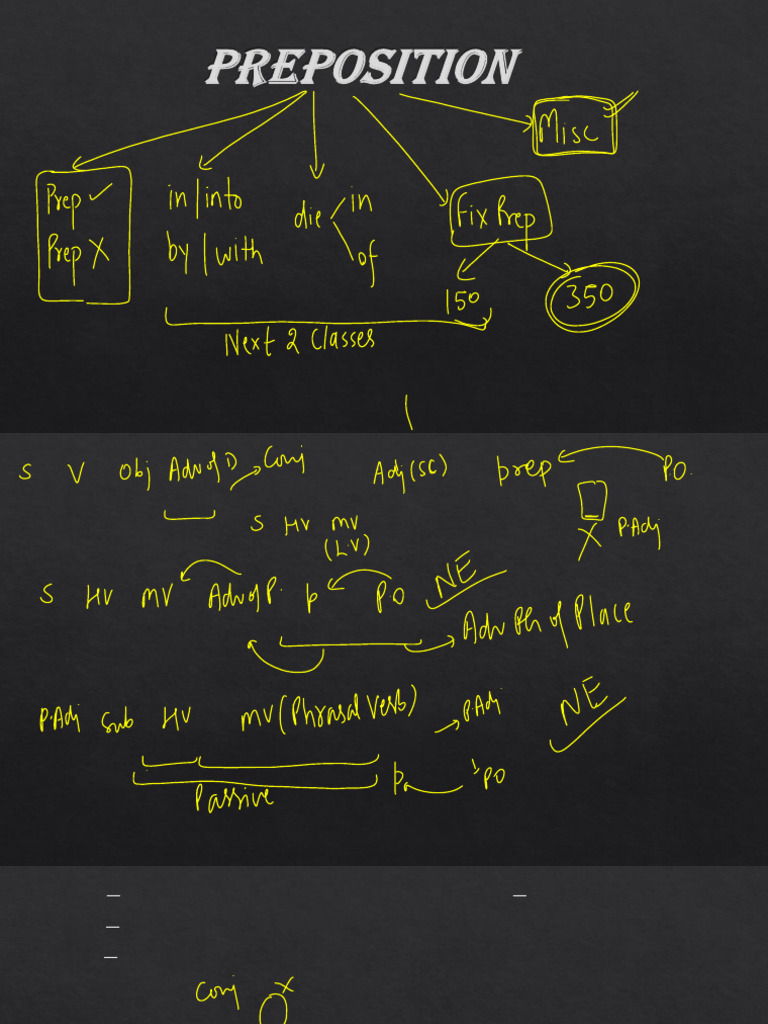 PREPOSITION
Misc
Prep ✓ in/into die in Fix Prep
Prep X by/with of
150 350
Next 2 Classes
S V Obj Adv of D Conj Adj (SC) prep PO.
S HV MV X P.Adj
(L.V)
S HV MV Adv of P. p P.O NE
Adv Ph of Place
P.Adj Sub HV MV (Phrasal Verb) P.Adj NE
Passive p PO
Conj X